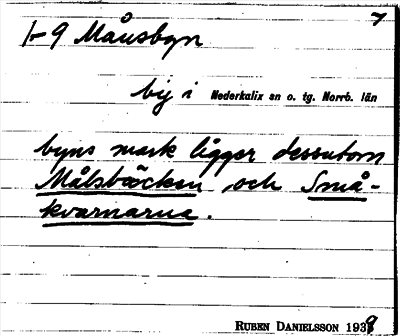 7
1-9 Månsbyn
by i Nederkalix sn o. tg. Norrb. län
byns mark ligger dessutom
Målsbäcken och Små-
kvarnarna.
RUBEN DANIELSSON 1939